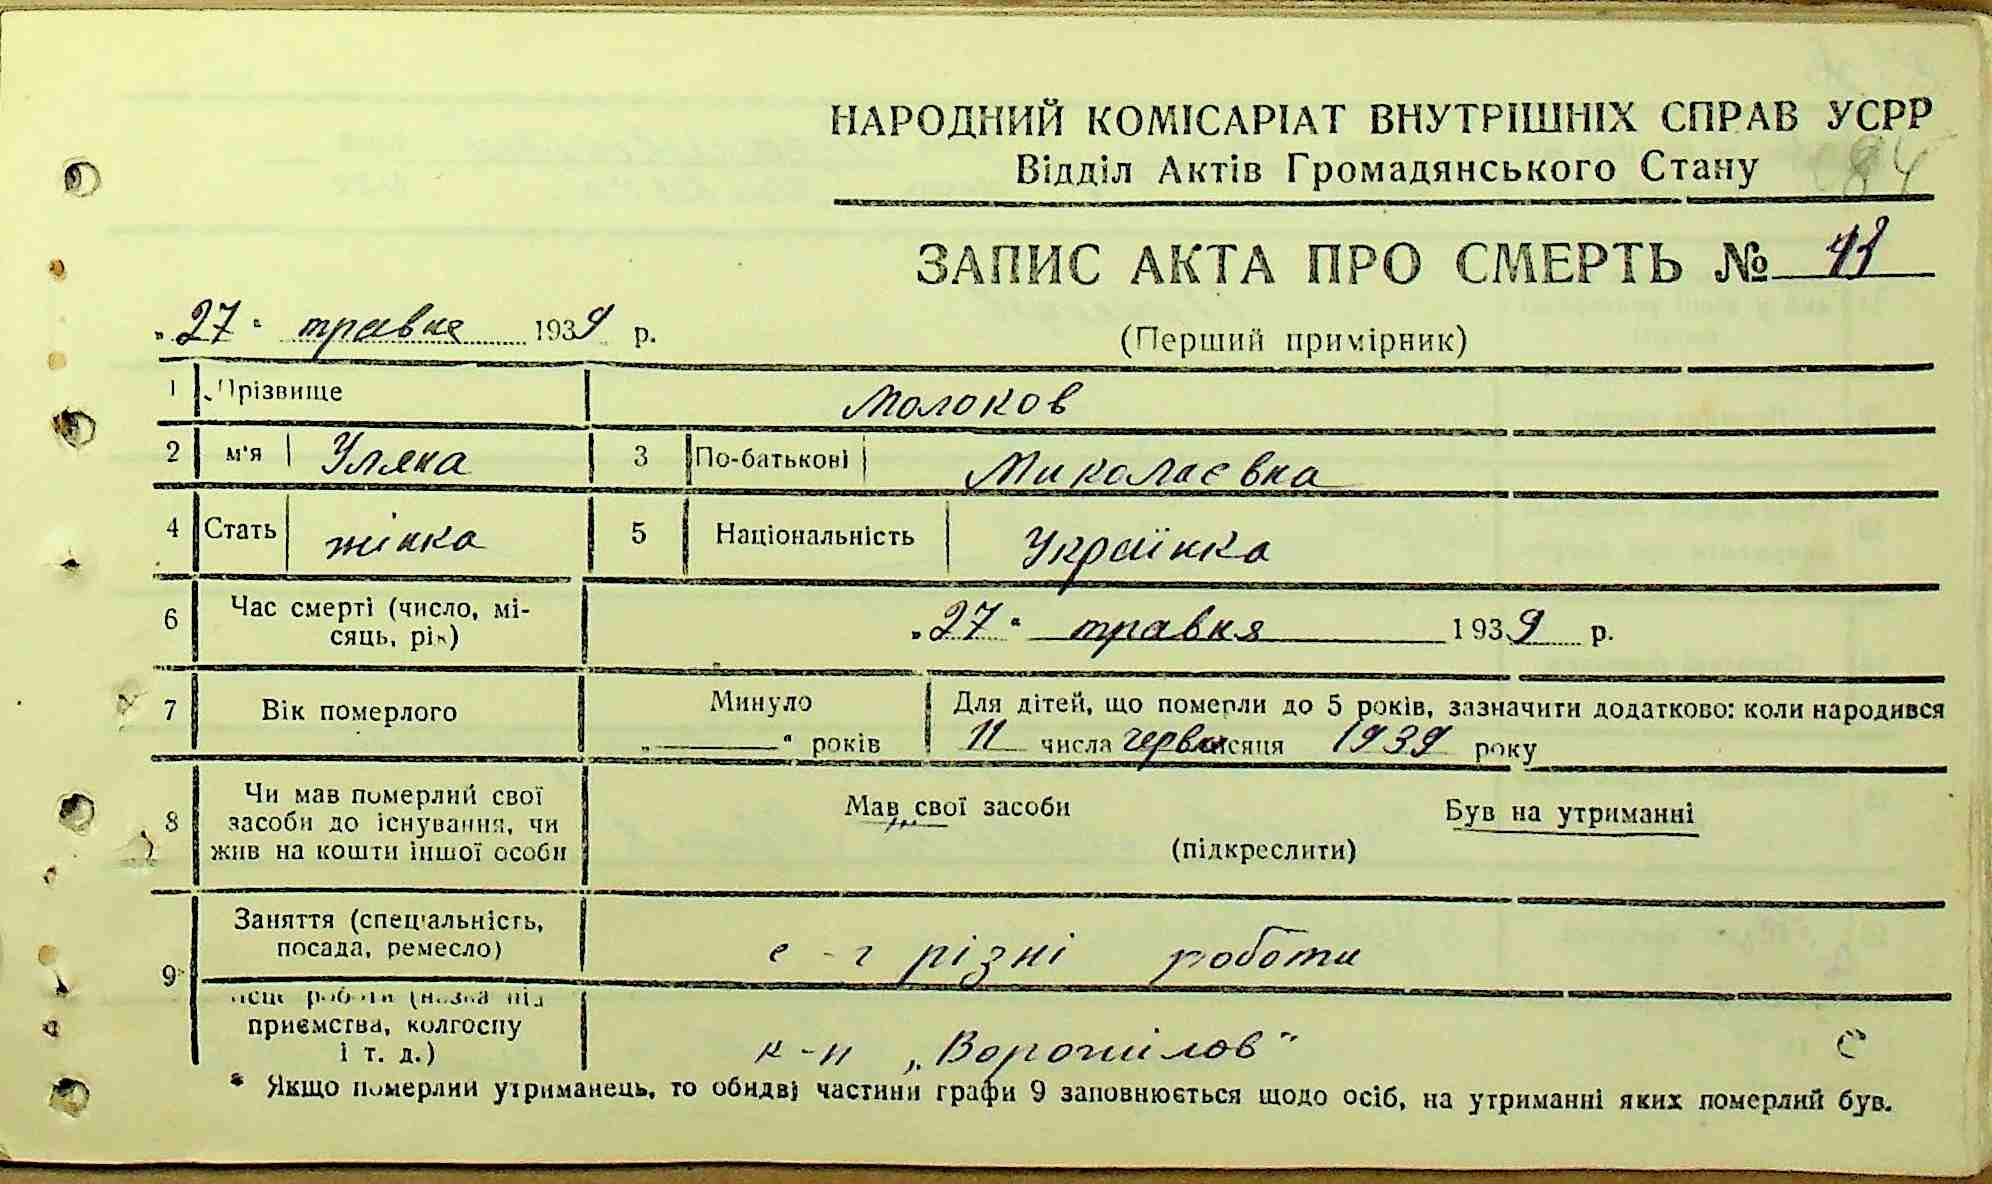 НАРОДНИЙ КОМІСАРІАТ ВНУТРІШНІХ СПРАВ УСРР
Відділ Актів Громадянського Стану
84
ЗАПИС АКТА ПРО СМЕРТЬ №
„27“ травня 1939 р.
(Перший примірник)
1 Прізвище Молоков
2 м'я Уляна 3 По-батькові Миколаєвна
4 Стать жінка 5 Національність Українка
6 Час смерті (число, мі-
сяць, рік) „27“ травня 1939 р.
7 Вік померлого Минуло
„—“ років
Для дітей, що померли до 5 років, зазначити додатково: коли народився
11 числа червн місяця 1939 року
8 Чи мав померлий свої
засоби до існування, чи
жив на кошти іншої особи
Мав свої засоби Був на утриманні
(підкреслити)
9 Заняття (спеціальність,
посада, ремесло) с-г різні роботи
місце роботи (назва під
приємства, колгоспу
і т. д.) к-п „Ворошилов"
* Якщо померлий утриманець, то обидві частини графи 9 заповнюється щодо осіб, на утриманні яких померлий був.